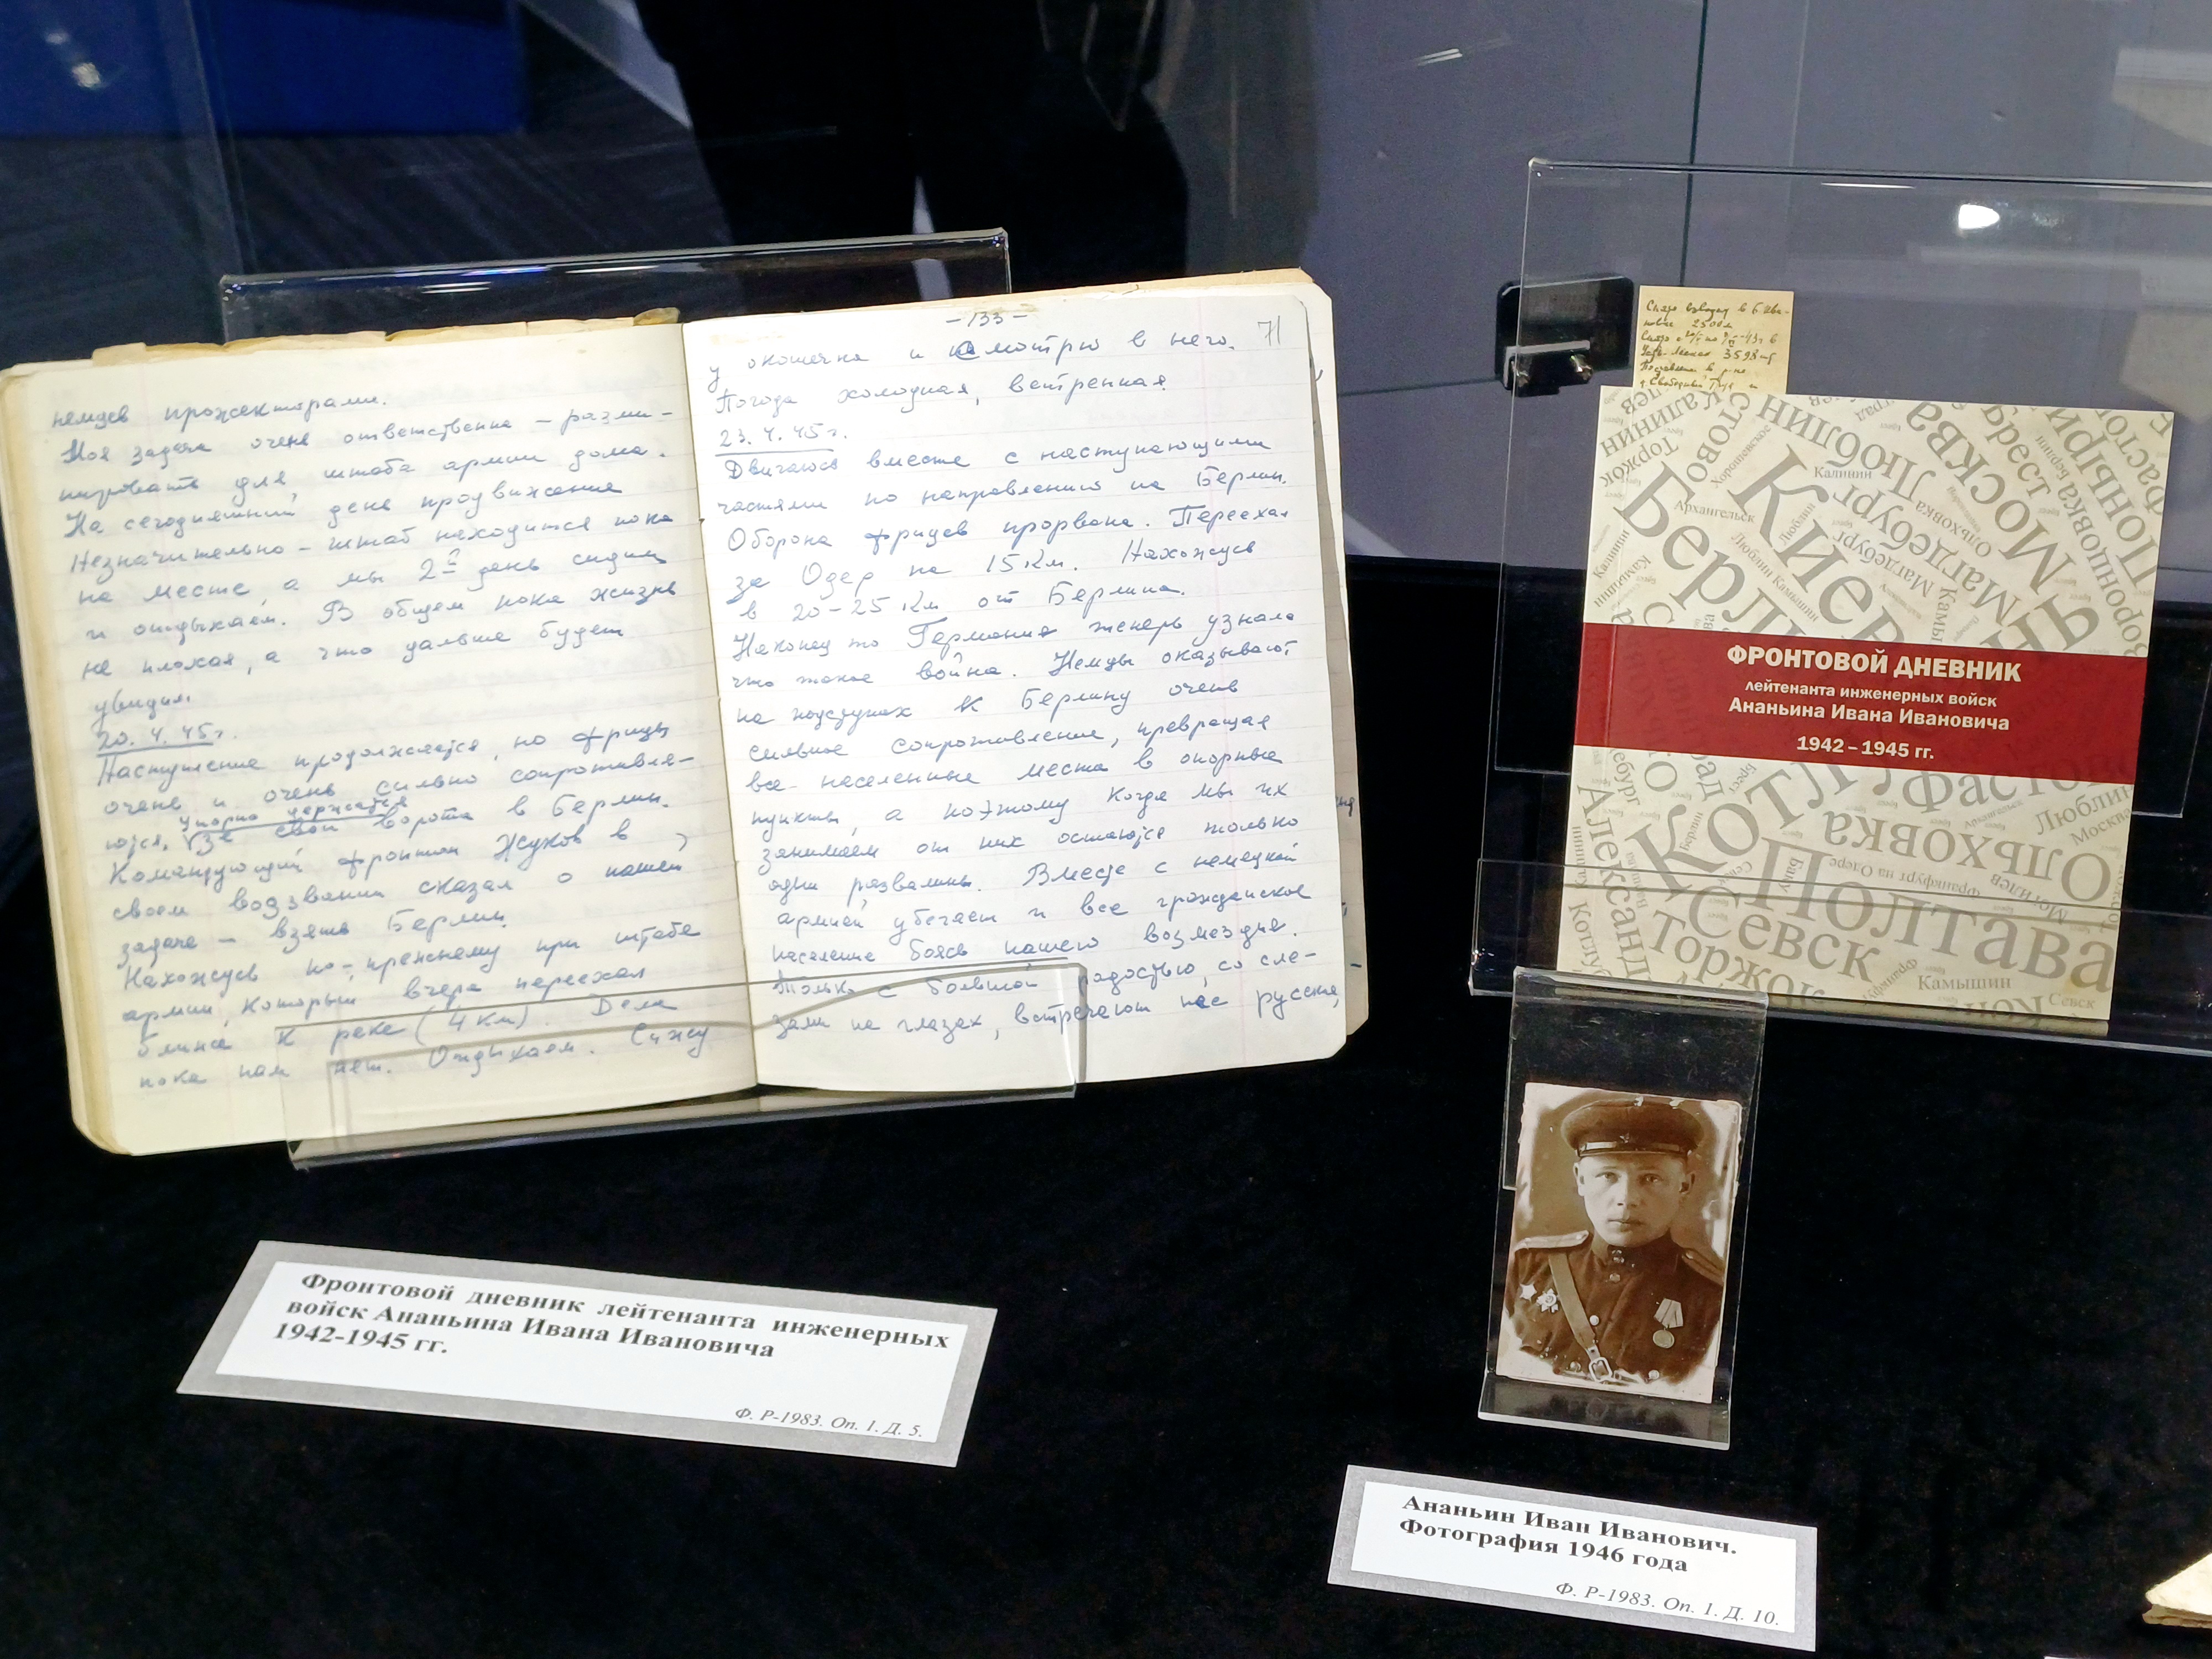 немцев прожекторами.
Моя задача очень ответственна – разми–
нировать для штаба армии дома.
На сегодняшний день продвижение
незначительно – штаб находится пока
на месте, а мы 2й день сидим
и отдыхаем. В общем пока жизнь
не плохая, а что дальше будет
увидим.
20.4.45г.
Наступление продолжается, но фрицы
очень и очень сильно сопротивля–
ются. Упорно держатся
за свои ворота в Берлин.
Командующий фронтом Жуков в
своем воззвании сказал о нашей
задаче – взять Берлин.
Нахожусь по-прежнему при штабе
армии, который вчера переехал
ближе к реке (4 км). Дела
пока нам нет. Отдыхаем. Сижу
–133–
71
у окошечка и смотрю в него.
Погода холодная, ветренная
23.4.45г.
Двигаюсь вместе с наступающими
частями по направлению на Берлин.
Оборона фрицев прорвана. Переехал
за Одер на 15 км. Нахожусь
в 20–25 км от Берлина.
Наконец то Германия теперь узнала
что такое война. Немцы оказывают
на подступах к Берлину очень
сильное сопротивление, превращая
все населенные места в опорные
пункты, а поэтому когда мы их
занимаем от них остаются только
одни развалины. Вместе с немецкой
армией убегает и все гражданское
население боясь нашего возмездия.
Только с большой радостью, со сле–
зами на глазах, встречают нас русские,
Фронтовой дневник лейтенанта инженерных
войск Ананьина Ивана Ивановича
1942-1945 гг.
Ф. Р-1983. Оп. 1. Д. 5.
2500
3598
Калинин
Торжок
Люблин
Москва
Брест
Поныри
Воронцовка
Киев
Калинин
Магдебург
Архангельск
Ольховка
Берлин
Люблин
Камышин
ФРОНТОВОЙ ДНЕВНИК
лейтенанта инженерных войск
Ананьина Ивана Ивановича
1942 – 1945 гг.
Фастов
Люблин
Москва
Ольховка
Франкфурт на Одере
Могилев
Баку
Полтава
Севск
Торжок
Камышин
Севск
Ананьин Иван Иванович.
Фотография 1946 года
Ф. Р-1983. Оп. 1. Д. 10.